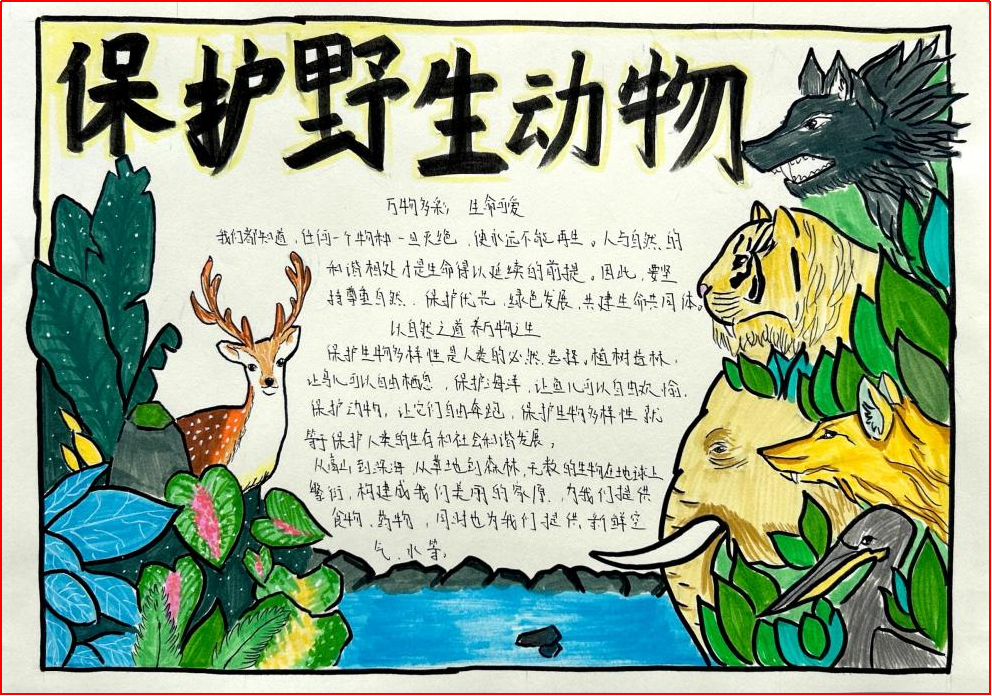 保护野生动物
万物多彩，生命可爱
我们都知道，任何一个物种一旦灭绝，便永远不能再生。人与自然的
和谐相处才是生命得以延续的前提。因此，要坚
持尊重自然、保护优先、绿色发展、共建生命共同体。
以自然之道 养万物之生
保护生物多样性是人类的必然选择。植树造林，
让鸟儿可以自由栖息，保护海洋，让鱼儿可以自由欢愉，
保护动物，让它们自由奔跑，保护生物多样性就
等于保护人类的生存和社会和谐发展。
从高山到深海，从草地到森林，无数的生物在地球上
繁衍，构建成我们美丽的家园，为我们提供
食物、药物，同时也为我们提供新鲜空
气、水等。